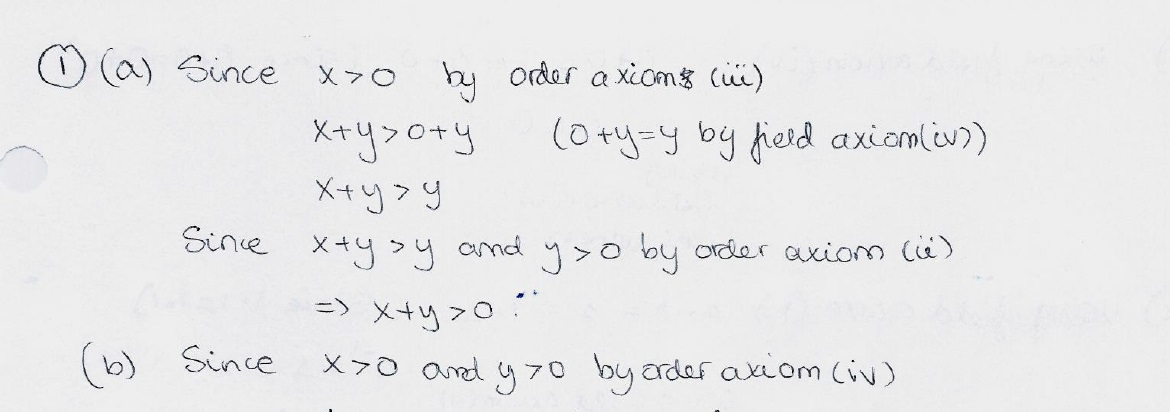 ① (a) Since x>0 by order axioms (iii)
x+y>0+y (0+y=y by field axiom(iv))
x+y>y
Since x+y>y and y>0 by order axiom (ii)
=> x+y>0.
(b) Since x>0 and y>0 by order axiom (iv)